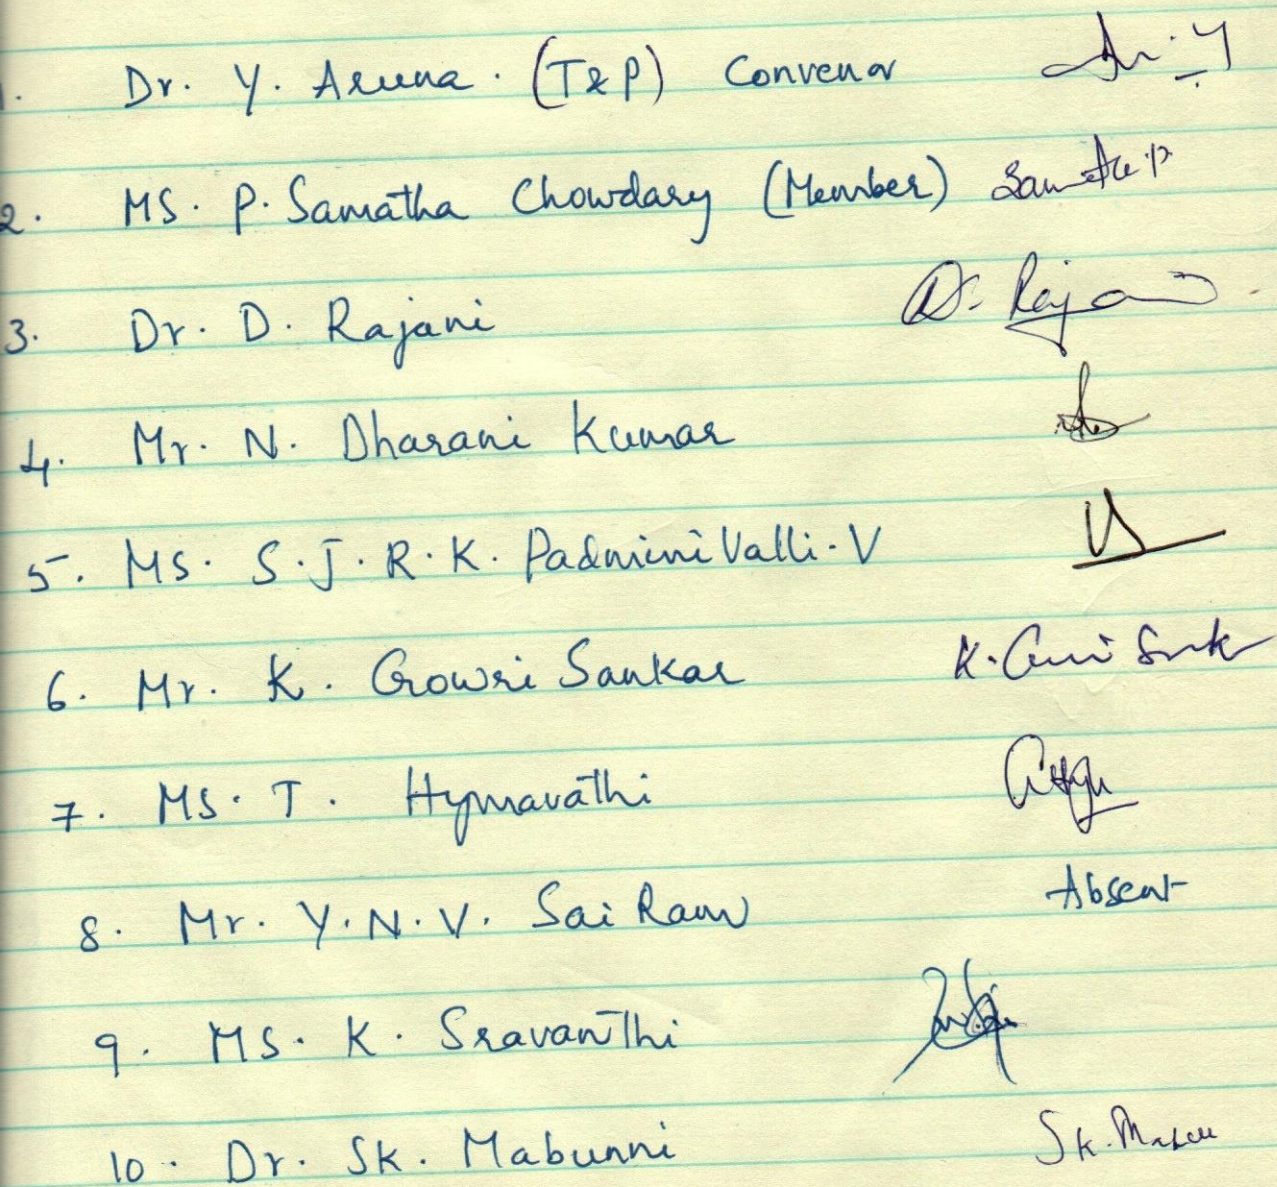 1. Dr. Y. Aruna. (T&P) Convenor
2. MS. P. Samatha Chowdary (Member) Samatha.P
3. Dr. D. Rajani D. Rajani
4. Mr. N. Dharani Kumar
5. MS. S.J.R.K. Padmini Valli.V
6. Mr. K. Gowri Sankar
7. MS. T. Hymavathi
8. Mr. Y.N.V. Sai Ram Absent
9. MS. K. Sravanthi
10. Dr. SK. Mabunni